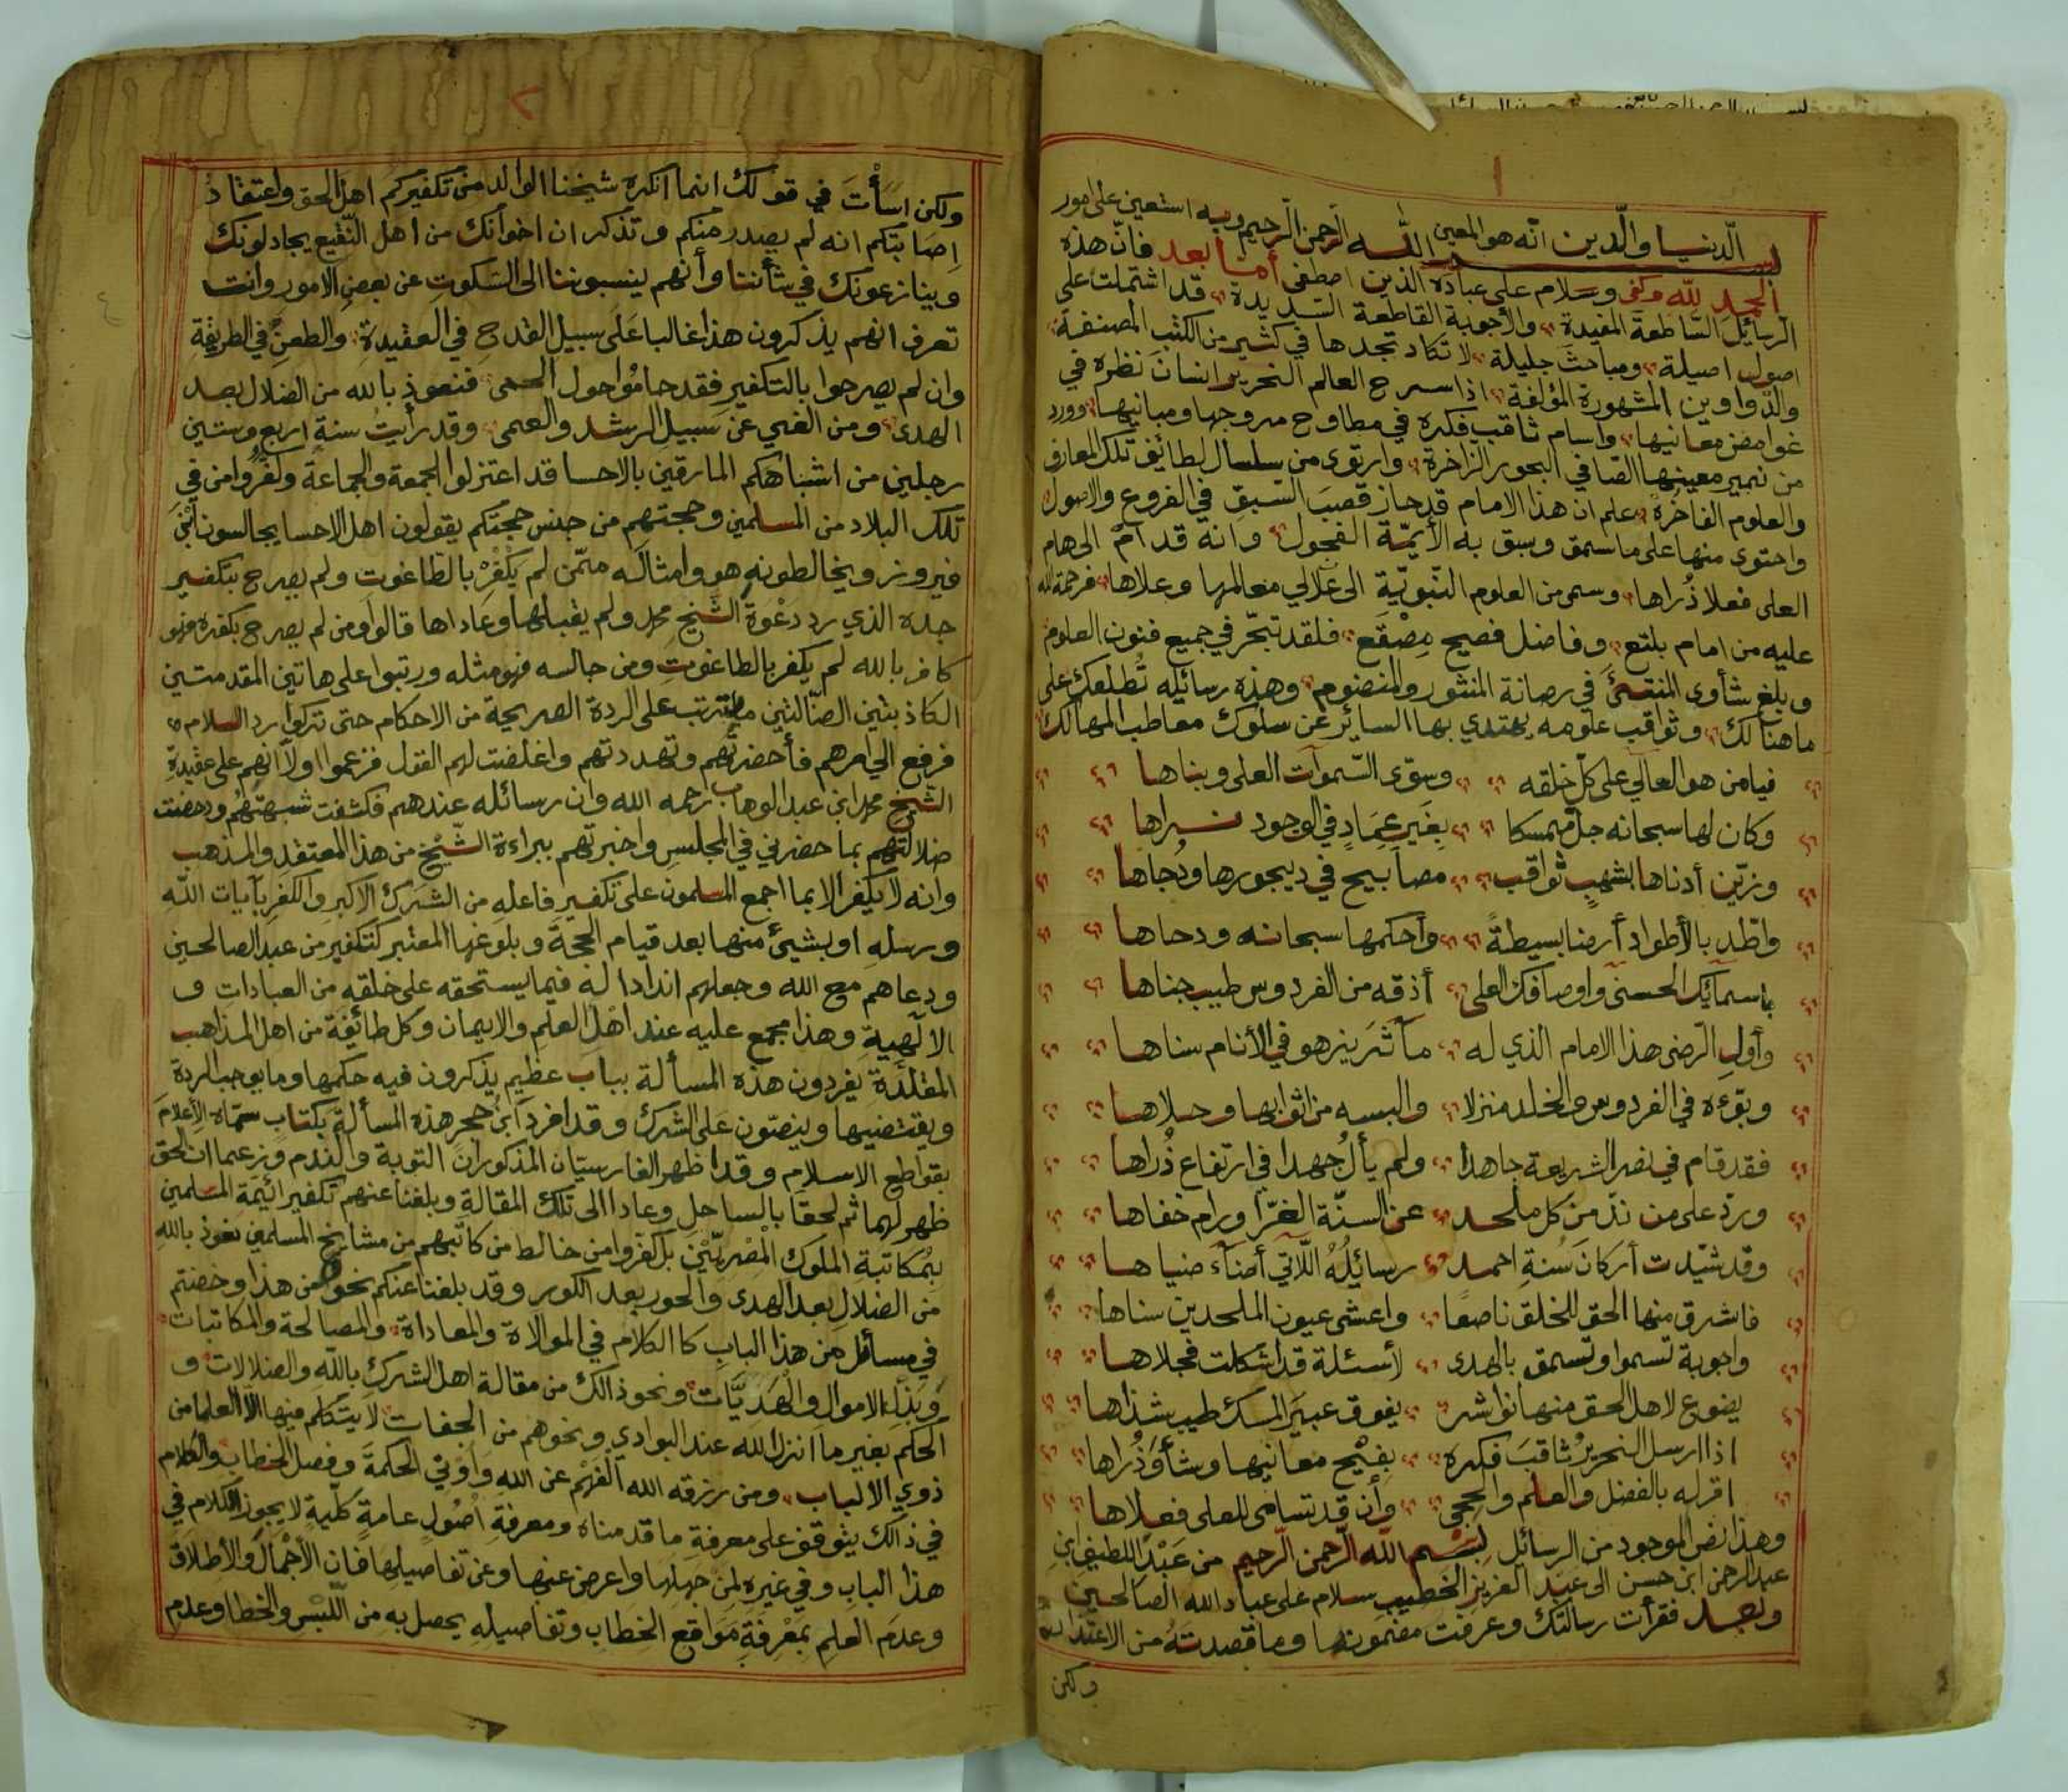 ١
بسم الله الرحمن الرحيم وبه استعين على امور
الدنيا والدين انه هو المعين
الحمد لله وكفى وسلام على عباده الذين اصطفى أما بعد فان هذه
الرسائل الساطعة المفيدة والأجوبة القاطعة السديدة قد اشتملت على
اصول اصيلة ومباحث جليلة لا تكاد تجدها في كثير من الكتب المصنفة
والدواوين المشهورة المؤلفة اذا سرح العالم النحرير انسان نظره في
غوامض معانيها واسام ثاقب فكره في مطاوح مروجها ومبانيها وورد
من نمير معينها الصافي البحور الزاخرة وارتوى من سلسال لطائف تلك المعارف
والعلوم الفاخرة علم ان هذا الامام قد حاز قصب السبق في الفروع والاصول
واحتوى منها على ما سمق وسبق به الأيمة الفحول وانه قد ام الى هام
العلى فعلا ذراها وسمى من العلوم النبوية الى علالي معالمها وعلاها فرحمة الله
عليه من امام بلتع وفاضل فصيح مصقع فلقد تبحر في جميع فنون العلوم
وبلغ شأوى المنتهى في رصانة المنثور والمنضوم وهذه رسائله تطلعك على
ما هنالك وثواقب علومه يهتدي بها السائر عن سلوك معاطب المهالك
فيا من هو العالي على كل خلقه وسوى السموات العلى وبناها
وكان لها سبحانه جل ممسكا بغير عماد في الوجود نراها
وزين أدناها بشهب ثواقب مصابيح في ديجورها ودجاها
واطد بالأطواد أرضا بسيطة وأحكمها سبحانه ودحاها
باسمائك الحسنى واوصافك العلى أذقه من الفردوس طيب جناها
وأول الرضى هذا الامام الذي له مآثر يزهو في الأنام سناها
وبوءه في الفردوس والخلد منزلا والبسه من اثوابها وحلاها
فقد قام في نصر الشريعة جاهدا ولم يأل جهدا في ارتفاع ذراها
ورد على من ند من كل ملحد عن السنة الغرا ورام خفاها
وقد شيدت أركان سنة احمد رسائله اللاتي أضاء ضياها
فاشرق منها الحق للخلق ناصعا واعشى عيون الملحدين سناها
واجوبة تسموا وتسمق بالهدى لأسئلة قد اشكلت فجلاها
يضوع لاهل الحق منها نواشر يفوق عبير المسك طيب شذاها
اذا ارسل النحرير ثاقب فكره بفيح معانيها وشأو ذراها
اقر له بالفضل والعلم والحجى وأن قد تسامى للعلى فعلاها
وهذا نص الموجود من الرسائل بسم الله الرحمن الرحيم من عبد اللطيف ابن
عبد الرحمن ابن حسن الى عبد العزيز الخطيب سلام على عباد الله الصالحين
وبعد فقرأت رسالتك وعرفت مضمونها وما قصدته من الاعتذار
ولكن
٢
ولكن اسأت في قولك انما انكره شيخنا الوالد من تكفيركم اهل الحق واعتقاد
إصابتكم انه لم يصدر منكم وتذكر ان اخوانك من اهل النقيع يجادلونك
وينازعونك في شأننا وأنهم ينسبوننا الى السكوت عن بعض الامور وانت
تعرف انهم يذكرون هذا غالبا على سبيل القدح في العقيدة والطعن في الطريقة
وان لم يصرحوا بالتكفير فقد حاموا حول الحمى فنعوذ بالله من الضلال بعد
الهدى ومن الغي عن سبيل الرشد والعمى وقد رأيت سنة اربع وستين
رجلين من اشباهكم المارقين بالاحسا قد اعتزلوا الجمعة والجماعة وكفروا من في
تلك البلاد من المسلمين وحجتهم من جنس حجتكم يقولون اهل الاحسا يجالسون ابن
فيروز ويخالطونه هو وامثاله ممن لم يكفر بالطاغوت ولم يصرح بتكفير
جده الذي رد دعوة الشيخ محمد ولم يقبلها وعاداها قالوا ومن لم يصرح بكفره فهو
كافر بالله لم يكفر بالطاغوت ومن جالسه فهو مثله ورتبوا على هاتين المقدمتين
الكاذبتين الضالتين ما يترتب على الردة الصريحة من الاحكام حتى تركوا رد السلام
فرفع الي امرهم فأحضرتهم وتهددتهم واغلضت لهم القول فزعموا اولا انهم على عقيدة
الشيخ محمد ابن عبد الوهاب رحمه الله وان رسائله عندهم فكشفت شبهتهم ودحضت
ضلالتهم بما حضرني في المجلس واخبرتهم ببراءة الشيخ من هذا المعتقد والمذهب
وانه لا يكفر الا بما اجمع المسلمون على تكفير فاعله من الشرك الاكبر والكفر بآيات الله
ورسله او بشيئ منها بعد قيام الحجة وبلوغها المعتبر كتكفير من عبد الصالحين
ودعاهم مع الله وجعلهم اندادا له فيما يستحقه على خلقه من العبادات و
الالهية وهذا مجمع عليه عند اهل العلم والايمان وكل طائفة من اهل المذاهب
المقلدة يفردون هذه المسألة بباب عظيم يذكرون فيه حكمها وما يوجب الردة
ويقتضيها وينصون على الشرك وقد افرد ابن حجر هذه المسألة بكتاب سماه الاعلام
بقواطع الاسلام وقد اظهر الفارسيان المذكوران التوبة والندم وزعما ان الحق
ظهر لهما ثم لحقا بالساحل وعادا الى تلك المقالة وبلغنا عنهم تكفير ائيمة المسلمين
بمكاتبة الملوك المصريين بل كفروا من خالط من كاتبهم من مشايخ المسلمين نعوذ بالله
من الضلال بعد الهدى والحور بعد الكور وقد بلغنا عنكم نحو من هذا وخضتم
في مسائل من هذا الباب كالكلام في الموالاة والمعاداة والمصالحة والمكاتبات
وبذل الاموال والهديات ونحو ذالك من مقالة اهل الشرك بالله والضلالات و
الحكم بغير ما انزل الله عند البوادي ونحوهم من الجفات لا يتكلم فيها الا العلما من
ذوي الالباب ومن رزقه الله الفهم عن الله واوفي الحكمة وفصل الخطاب والكلام
في ذالك يتوقف على معرفة ما قدمناه ومعرفة اصول عامة كلية لا يجوز الكلام في
هذا الباب وفي غيره لمن جهلها واعرض عنها وعن تفاصيلها فان الاجمال والأطلاق
وعدم العلم بمعرفة مواقع الخطاب وتفاصيله يحصل به من اللبس والخطا وعدم